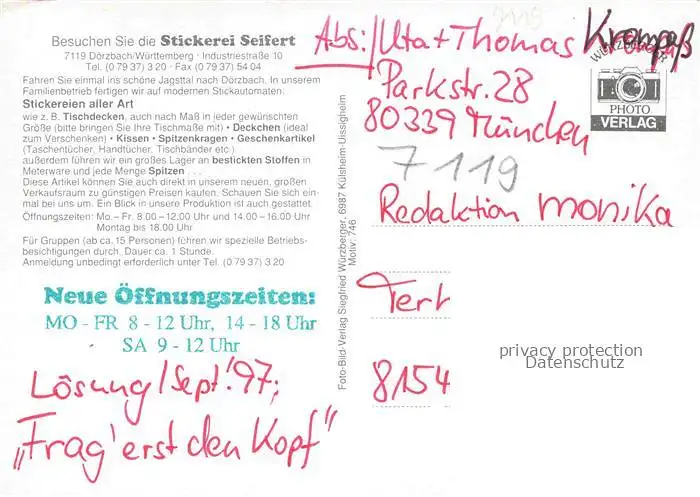 7119
Besuchen Sie die Stickerei Seifert
7119 Dörzbach/Württemberg · Industriestraße 10
Tel. (0 79 37) 3 20 · Fax (0 79 37) 54 04
Fahren Sie einmal ins schöne Jagsttal nach Dörzbach. In unserem
Familienbetrieb fertigen wir auf modernen Stickautomaten:
Stickereien aller Art
wie z. B. Tischdecken, auch nach Maß in jeder gewünschten
Größe (bitte bringen Sie Ihre Tischmaße mit) • Deckchen (ideal
zum Verschenken) • Kissen • Spitzenkragen • Geschenkartikel
(Taschentücher, Handtücher, Tischbänder etc.)
außerdem führen wir ein großes Lager an bestickten Stoffen in
Meterware und jede Menge Spitzen . . .
Diese Artikel können Sie auch direkt in unserem neuen, großen
Verkaufsraum zu günstigen Preisen kaufen. Schauen Sie sich ein-
mal bei uns um. Ein Blick in unsere Produktion ist auch gestattet.
Öffnungszeiten: Mo.– Fr. 8.00 – 12.00 Uhr und 14.00 – 16.00 Uhr
Montag bis 18.00 Uhr
Für Gruppen (ab ca. 15 Personen) führen wir spezielle Betriebs-
besichtigungen durch, Dauer ca. 1 Stunde.
Anmeldung unbedingt erforderlich unter Tel. (0 79 37) 3 20
Neue Öffnungszeiten:
MO - FR 8 - 12 Uhr, 14 - 18 Uhr
SA 9 - 12 Uhr
Lösung/Sept.'97:
„Frag' erst den Kopf"
Foto-Bild-Verlag Siegfried Würzberger, 6987 Külsheim-Uissigheim
Motiv: 746
Abs:/Uta + Thomas Krampß
Parkstr. 28
80339 München
PHOTO
VERLAG
7119
Redaktion monika
Tert
8154
privacy protection
Datenschutz